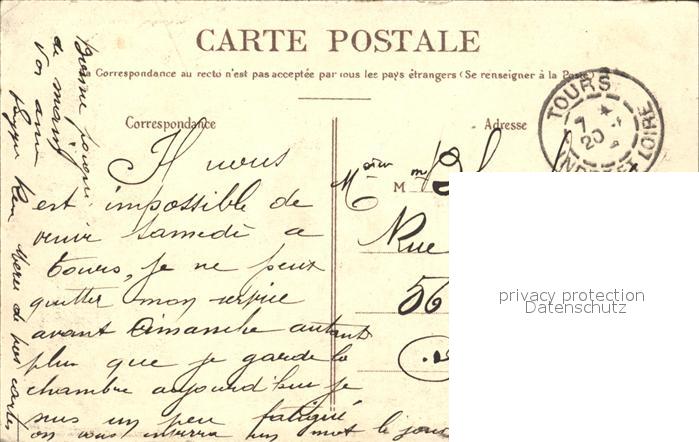 CARTE POSTALE
La Correspondance au recto n'est pas acceptée par tous les pays étrangers (Se renseigner à la Poste)
Correspondance
Adresse
TOURS
7
20
INDRE-ET-LOIRE
Il nous
est impossible de
venir samedi a
tours, je ne peux
quitter mon service
avant dimanche autant
plus que je garde la
chambre aujourd'hui je
suis un peu fatigué
on vous un mot le jour
M
Rue
56
Bonne
de
Vos amis
Merci de vos cartes
privacy protection
Datenschutz